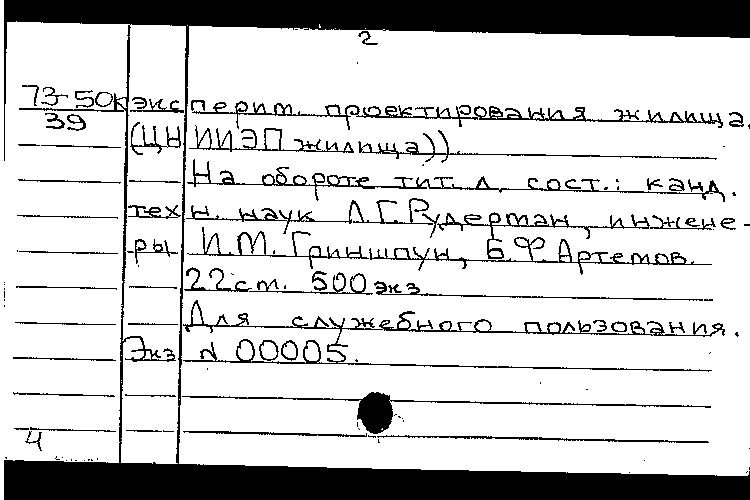 2
73-50к эксперим. проектирования жилища.
39 (ЦНИИЭП жилища)).
На обороте тит. л. сост.: канд.
техн. наук Л.Г. Рудерман, инжене-
ры И.М. Гриншпун, Б.Ф Артемов.
22 ст. 500 экз
Для служебного пользования.
Экз N 00005.
4